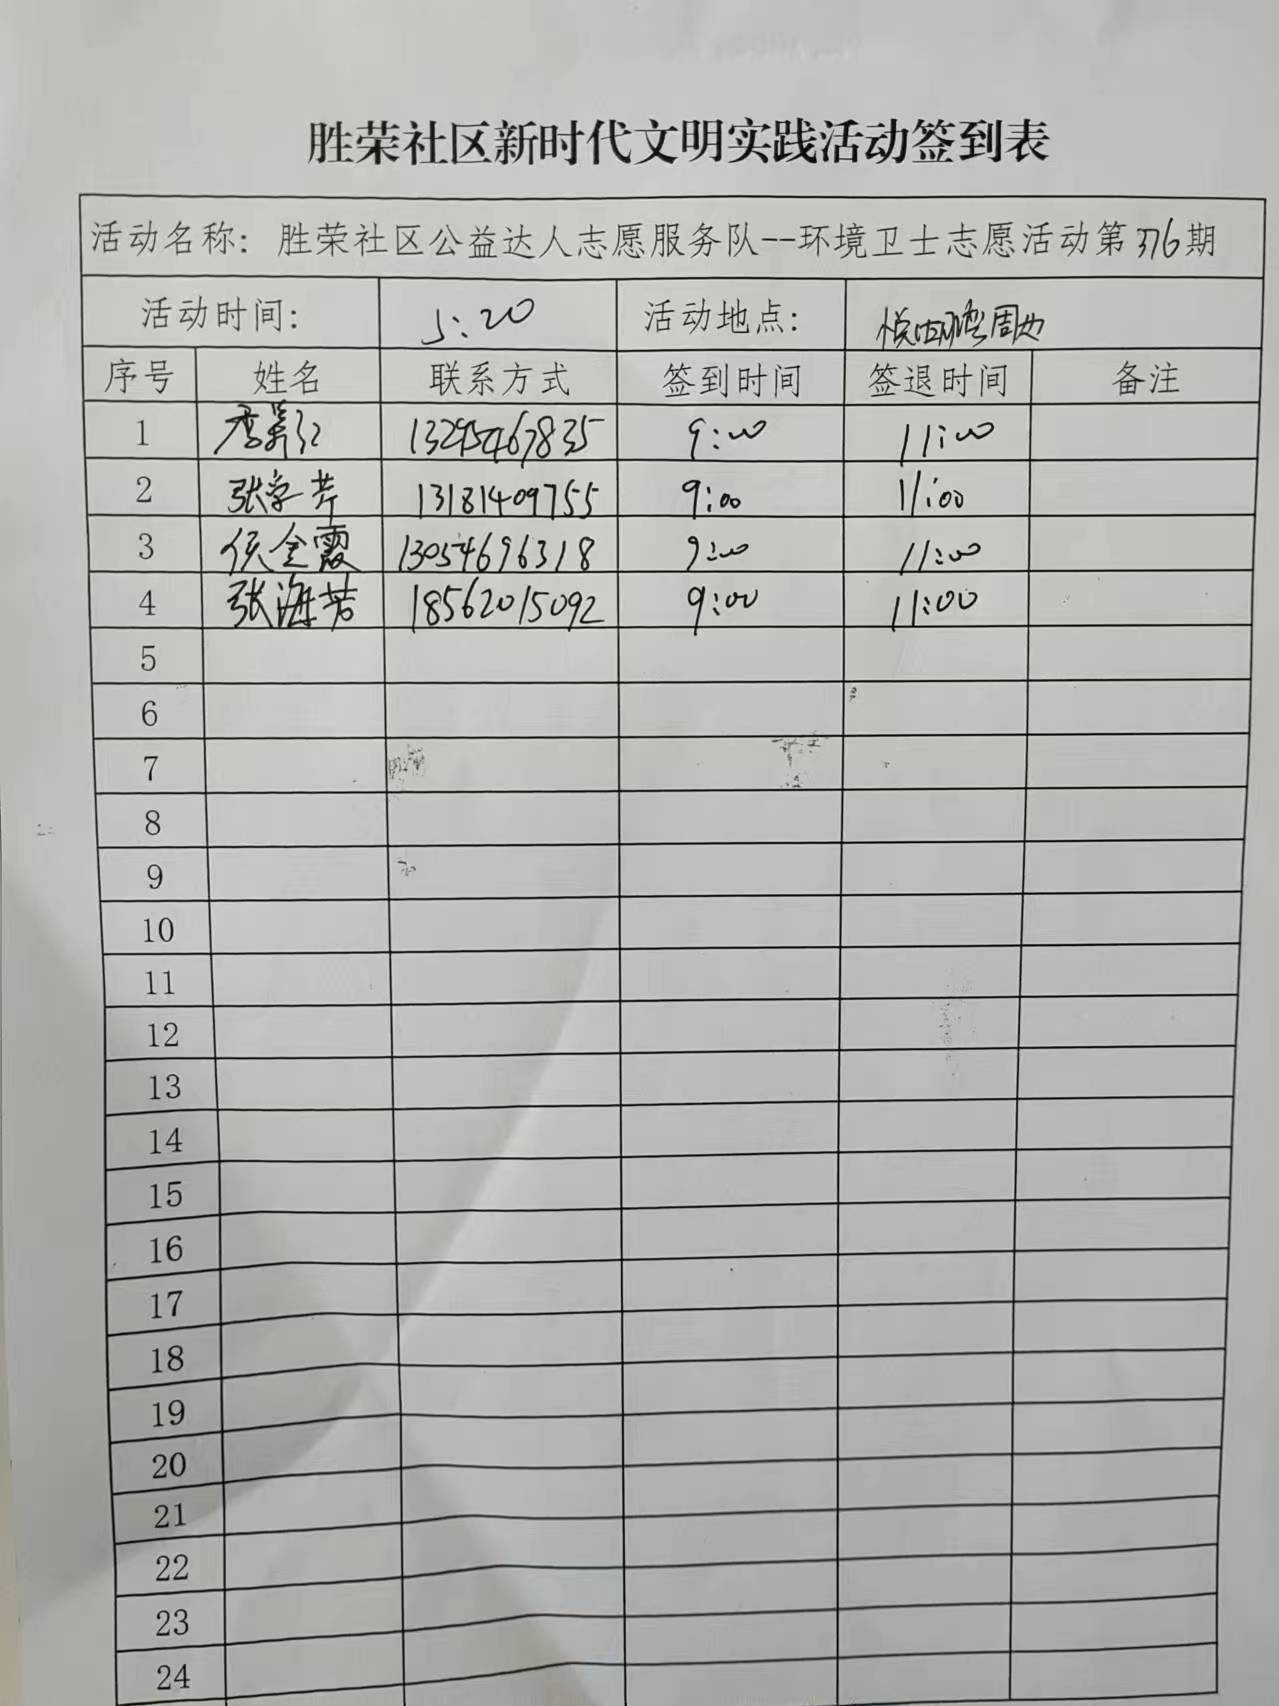 胜荣社区新时代文明实践活动签到表
活动名称：胜荣社区公益达人志愿服务队--环境卫士志愿活动第376期
活动时间： 5:20 活动地点： 周边
序号 姓名 联系方式 签到时间 签退时间 备注
1 李 13295467835 9:00 11:00
2 张学芹 13181409755 9:00 11:00
3 侯全霞 13054696318 9:00 11:00
4 张海芳 18562015092 9:00 11:00
5
6
7
8
9
10
11
12
13
14
15
16
17
18
19
20
21
22
23
24